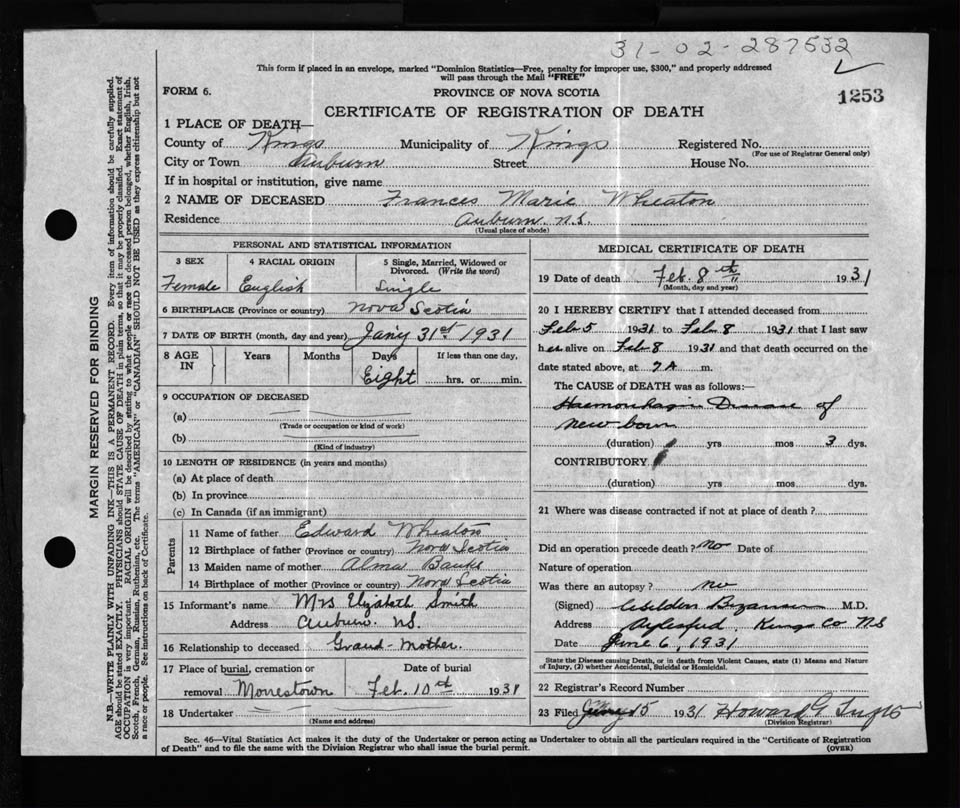 31-02-287532
This form if placed in an envelope, marked "Dominion Statistics—Free, penalty for improper use, $300," and properly addressed
will pass through the Mail "FREE"
FORM 6.
PROVINCE OF NOVA SCOTIA
1253
CERTIFICATE OF REGISTRATION OF DEATH
1 PLACE OF DEATH—
County of Kings Municipality of Kings Registered No.
(For use of Registrar General only)
City or Town Auburn Street House No.
If in hospital or institution, give name
2 NAME OF DECEASED Frances Marie Wheaton
Residence Auburn N.S.
(Usual place of abode)
PERSONAL AND STATISTICAL INFORMATION
3 SEX 4 RACIAL ORIGIN 5 Single, Married, Widowed or
Divorced. (Write the word)
Female English Single
6 BIRTHPLACE (Province or country) Nova Scotia
7 DATE OF BIRTH (month, day and year) Jan'y 31st 1931
8 AGE IN Years Months Days If less than one day,
Eight hrs. or min.
9 OCCUPATION OF DECEASED
(a)
(Trade or occupation or kind of work)
(b)
(Kind of industry)
10 LENGTH OF RESIDENCE (in years and months)
(a) At place of death
(b) In province
(c) In Canada (if an immigrant)
Parents
11 Name of father Edward Wheaton
12 Birthplace of father (Province or country) Nova Scotia
13 Maiden name of mother Alma Banks
14 Birthplace of mother (Province or country) Nova Scotia
15 Informant's name Mrs Elizabeth Smith
Address Auburn. N.S.
16 Relationship to deceased Grand-Mother.
17 Place of burial, cremation or Date of burial
removal Morristown Feb. 10th 1931
18 Undertaker
(Name and address)
MEDICAL CERTIFICATE OF DEATH
19 Date of death Feb. 8th 1931
(Month, day and year)
20 I HEREBY CERTIFY that I attended deceased from
Feb 5 1931 to Feb 8 1931 that I last saw
her alive on Feb 8 1931 and that death occurred on the
date stated above, at 7 A m.
The CAUSE OF DEATH was as follows:—
Haemorrhagic Disease of
new born
(duration) yrs mos 3 dys.
CONTRIBUTORY
(duration) yrs mos dys.
21 Where was disease contracted if not at place of death?
Did an operation precede death? No Date of
Nature of operation
Was there an autopsy? no
(Signed) M.D.
Address Aylesford, Kings Co NS
Date June 6, 1931
State the Disease causing Death, or in death from Violent Causes, state (1) Means and Nature
of Injury, (2) whether Accidental, Suicidal or Homicidal.
22 Registrar's Record Number
23 Filed 15 1931 Howard G
(Division Registrar)
Sec. 46—Vital Statistics Act makes it the duty of the Undertaker or person acting as Undertaker to obtain all the particulars required in the "Certificate of Registration
of Death" and to file the same with the Division Registrar who shall issue the burial permit.
(OVER)
MARGIN RESERVED FOR BINDING
N.B.—WRITE PLAINLY WITH UNFADING INK—THIS IS A PERMANENT RECORD. Every item of information should be carefully supplied.
AGE should be stated EXACTLY. PHYSICIANS should STATE CAUSE OF DEATH in plain terms, so that it may be properly classified. Exact statement of
OCCUPATION is very important. RACIAL ORIGIN will be described by stating to what people or race the deceased person belonged, whether English, Irish,
Scotch, French, German, Russian, Ruthenian, etc. The terms "AMERICAN" or "CANADIAN" SHOULD NOT BE USED as they express citizenship but not
a race or people. See instructions on back of Certificate.